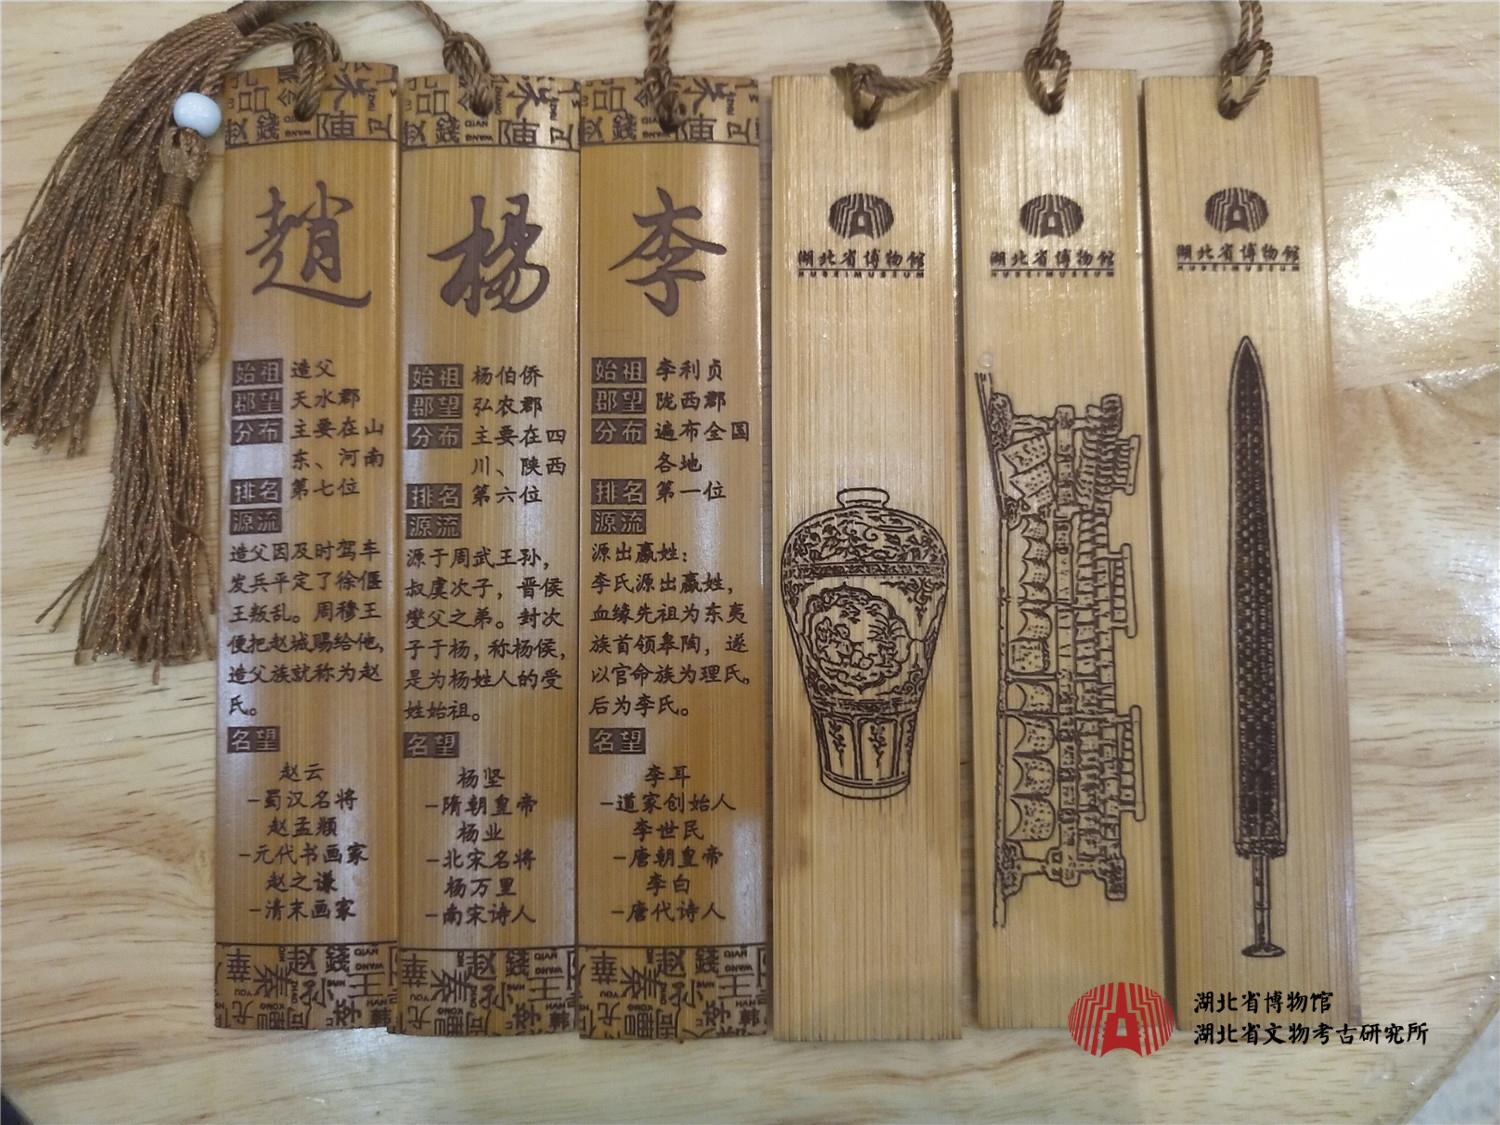 趙
始祖 造父
郡望 天水郡
分布 主要在山
东、河南
排名 第七位
源流
造父因及时驾车
发兵平定了徐偃
王叛乱。周穆王
便把赵城赐给他,
造父族就称为赵
氏。
名望
赵云
-蜀汉名将
赵孟頫
-元代书画家
赵之谦
-清末画家
楊
始祖 杨伯侨
郡望 弘农郡
分布 主要在四
川、陕西
排名 第六位
源流
源于周武王孙,
叔虞次子,晋侯
燮父之弟。封次
子于杨,称杨侯,
是为杨姓人的受
姓始祖。
名望
杨坚
-隋朝皇帝
杨业
-北宋名将
杨万里
-南宋诗人
李
始祖 李利贞
郡望 陇西郡
分布 遍布全国
各地
排名 第一位
源流
源出嬴姓:
李氏源出嬴姓,
血缘先祖为东夷
族首领皋陶,遂
以官命族为理氏,
后为李氏。
名望
李耳
-道家创始人
李世民
-唐朝皇帝
李白
-唐代诗人
湖北省博物馆
HUBEIMUSEUM
湖北省博物馆
HUBEIMUSEUM
湖北省博物馆
HUBEIMUSEUM
湖北省博物馆
湖北省文物考古研究所